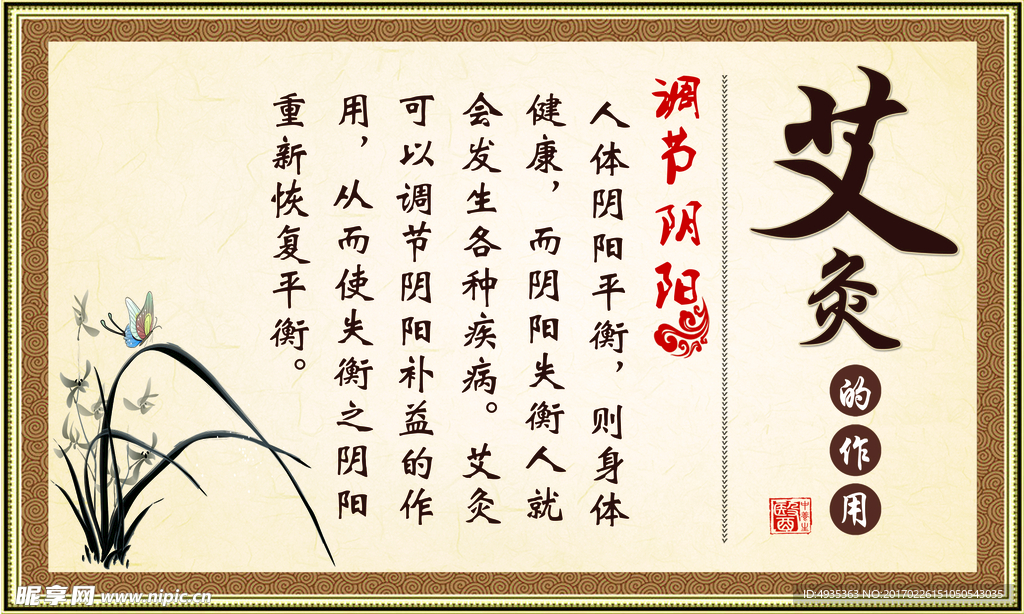 艾灸的作用
调节阴阳
人体阴阳平衡，则身体
健康，而阴阳失衡人就
会发生各种疾病。艾灸
可以调节阴阳补益的作
用，从而使失衡之阴阳
重新恢复平衡。
昵享网 www.nipic.cn
ID:4935363 NO:20170226151050543035